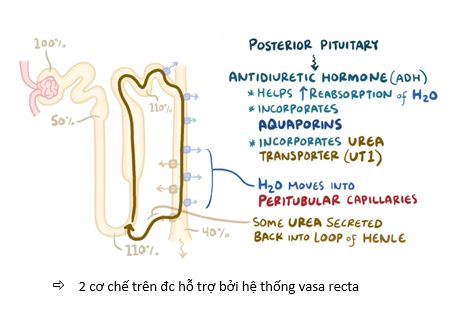 100%
POSTERIOR PITUITARY
ANTIDIURETIC HORMONE (ADH)
* HELPS ↑ REABSORPTION of H2O
* INCORPORATES
AQUAPORINS
* INCORPORATES UREA
TRANSPORTER (UT1)
110%
50%
H2O MOVES INTO
PERITUBULAR CAPILLARIES
SOME UREA SECRETED
BACK INTO LOOP of HENLE
40%
110%
⇨ 2 cơ chế trên đc hỗ trợ bởi hệ thống vasa recta